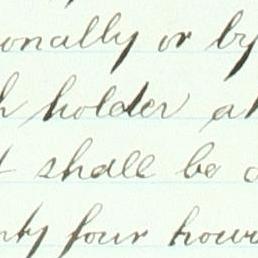 onally or by
h holder at
t shall be
nty four hours